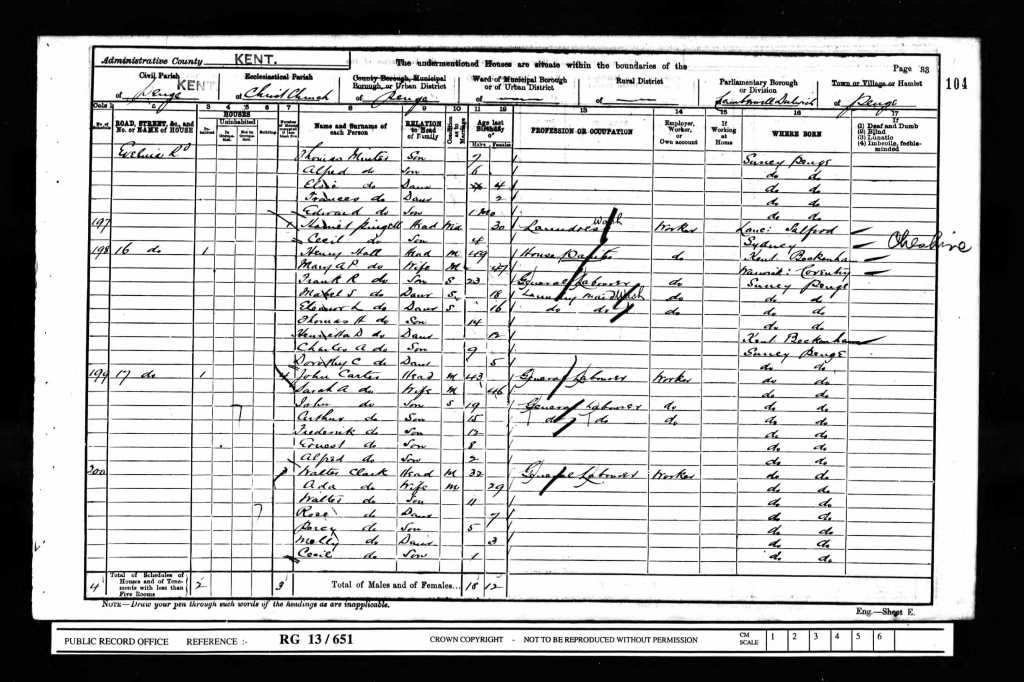 Administrative County KENT.
The undermentioned Houses are situate within the boundaries of the
Page 33
104
Civil Parish
of Penge KENT
Ecclesiastical Parish
of Christ Church
County Borough, Municipal Borough, or Urban District
of Penge
Ward of Municipal Borough or of Urban District
of
Rural District
of
Parliamentary Borough or Division
of
Town or Village or Hamlet
of Penge
Cols 1 2 3 4 5 6 7 8 9 10 11 12 13 14 15 16 17
ROAD, STREET, &c., and No. or NAME of HOUSE
HOUSES
Inhabited
Uninhabited
In Occupation
Not in Occupation
Building
Name and Surname of each Person
RELATION to Head of Family
Condition as to Marriage
Age last Birthday of
Males Females
PROFESSION OR OCCUPATION
Employer, Worker, or Own account
If Working at Home
WHERE BORN
If
(1) Deaf and Dumb
(2) Blind
(3) Lunatic
(4) Imbecile, feeble-minded
Evelina Rd Thomas Minter Son 7 Surrey Penge
Alfred do Son 6 do do
Elsie do Daur 4 do do
Frances do Daur 2 do do
Edward do Son 1 mo do do
197 Harriet Head Wd 30 Laundress Wash Worker Lanc: Salford
Cecil do Son 4 Sydney Cheshire
198 16 do 1 Henry Hall Head M 49 House Painter do Kent Beckenham
Mary A P do Wife M 47 Warwick: Coventry
Frank R do Son S 23 General Labourer do Surrey Penge
Mabel S do Daur S 18 Laundry Maid Wash do do do
Eleanor L do Daur S 16 do do do do do
Thomas H do Son 14 do do
Henrietta D do Daur 12 Kent Beckenham
Charles A do Son 9 Surrey Penge
Dorothy C do Daur 5 do do
199 17 do 1 4 John Carter Head M 43 General Labourer Worker do do
Sarah A do Wife M 46 do do
John do Son S 19 General Labourer do do do
Arthur do Son 15 do do do do do
Frederick do Son 12 do do
Ernest do Son 8 do do
Alfred do Son 2 do do
200 3 Walter Clark Head M 32 General Labourer Worker do do
Ada do Wife M 29 do do
Walter do Son 11 do do
Rose do Daur 7 do do
Percy do Son 5 do do
Molly do Daur 3 do do
Cecil do Son 1 do do
4 Total of Schedules of Houses and of Tenements with less than Five Rooms 2 3 Total of Males and of Females... 18 12
NOTE—Draw your pen through such words of the headings as are inapplicable.
Eng.—Sheet E.
PUBLIC RECORD OFFICE REFERENCE :- RG 13/651 CROWN COPYRIGHT - NOT TO BE REPRODUCED WITHOUT PERMISSION CM SCALE 1 2 3 4 5 6